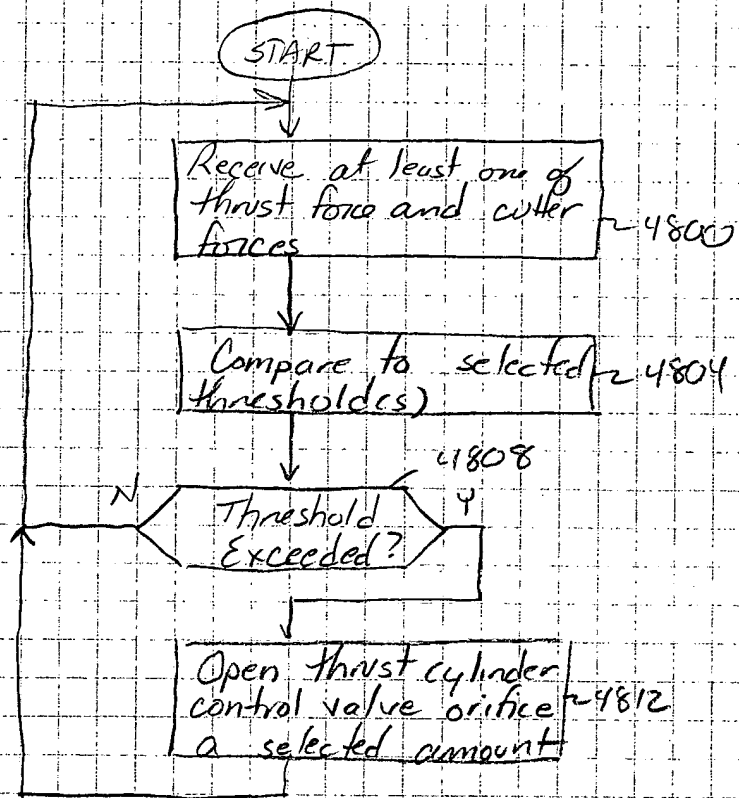 START
Receive at least one of
thrust force and cutter
forces
~4800
Compare to selected
threshold(s)
~4804
4808
N
Y
Threshold
Exceeded?
Open thrust cylinder
control valve orifice
a selected amount
~4812